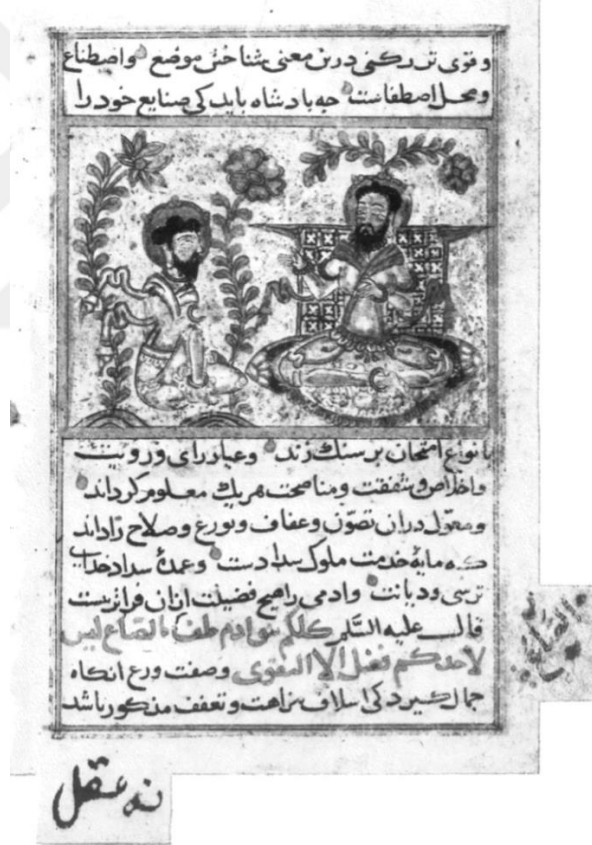 و قوی تر رکنی درین معنی شناختن موضع واصطناع
ومحل اصطفاست جه بادشاه باید کی صنایع خود را
بانواع امتحان بر سنك زند وعیار رای ورویت
واخلاص وشفقت ومناصحت هر یك معلوم کرداند
ومعول دران تصون وعفاف وتورع وصلاح را داند
که مایۀ خدمت ملوك سدادست وعمدۀ سداد خدای
ترسی ودیانت وادمی را هیج فضیلت ازان فراتر نیست
قال علیه السلم کلکم بنو ادم طف الصاع لیس
لاحد علی احد فضل الا التقوی وصفت ورع انکاه
جمال کیرد کی اسلاف بنزاهت وتعفف مذکور باشد
الصاع
نه عقل